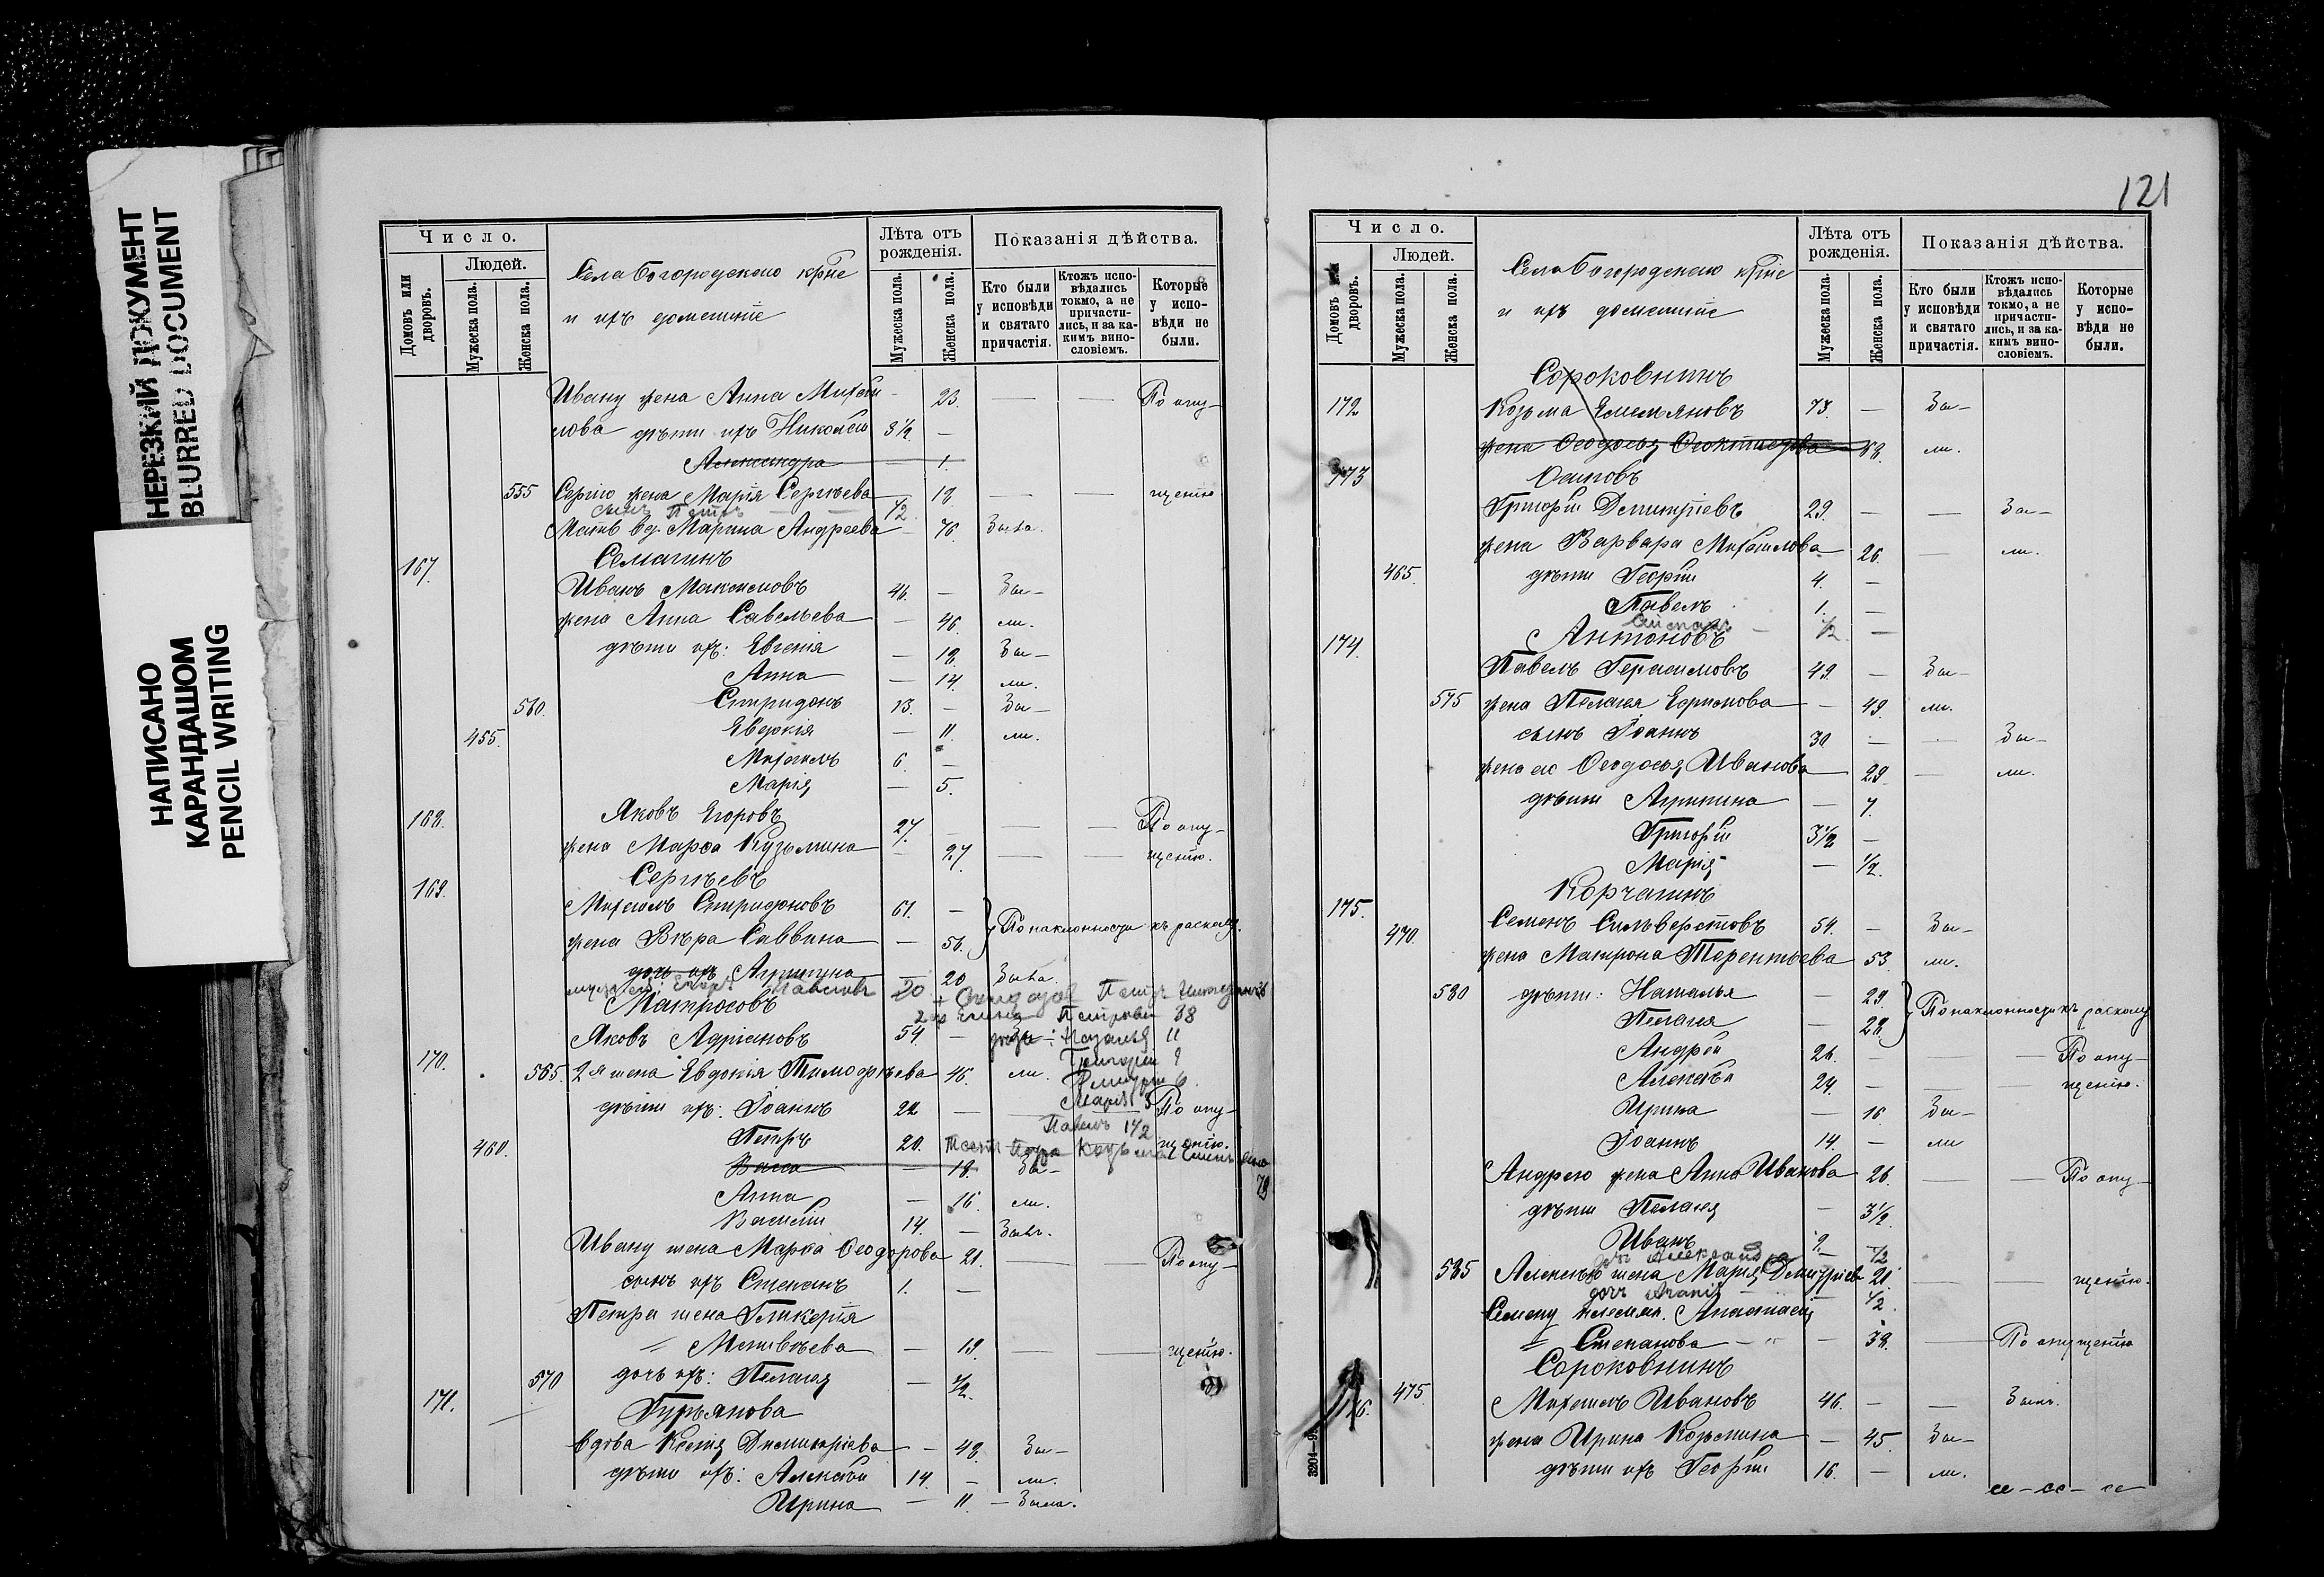 НЕРЕЗКИЙ ДОКУМЕНТ
BLURRED DOCUMENT
НАПИСАНО
КАРАНДАШОМ
PENCIL WRITING
Число.
Людей.
Домовъ или дворовъ.
Мужеска пола.
Женска пола.
Села Богородскаго крѣне
и ихъ домашніе
Лѣта отъ рожденія.
Мужеска пола.
Женска пола.
Показанія дѣйства.
Кто были у исповѣди и святаго причастія.
Ктожъ исповѣдались токмо, а не причастились, и за какимъ винословіемъ.
Которые у исповѣди не были.
Ивану жена Анна Михай- 23. — — По опу-
лова дѣти ихъ Николай 3½. —
Александра — 1.
555 Сергію жена Марія Сергѣева — 18. — — щенію
сынъ Петръ ½
Мать вд. Марина Андреева — 76. Была.
167. Семагинъ
Иванъ Максимовъ 46. — Бы-
жена Анна Савельева — 46. ли.
дѣти ихъ: Евгенія — 18. Бы-
Анна — 14. ли.
560. Спиридонъ 13. — Бы-
455. Евдокія — 11. ли.
Михаилъ 6. —
Марія — 5.
168. Яковъ Егоровъ 27. — — — По опу-
жена Марѳа Кузьмина — 27. — — щенію.
169. Сергѣевъ
Михаилъ Спиридоновъ 61. —
жена Вѣра Саввина — 56. По наклонности къ расколу.
дочь ихъ Агрипина — 20 Была.
20 Петръ
Матросовъ
2я Петрова 38
Яковъ Адріановъ 54 — 11
Григорій 9
170. 565. 2я жена Евдокія Тимоѳѣева 46. ли. 6.
Марія 3
дѣти ихъ: Іоаннъ 22 — По опу-
Павелъ 1½
460. Петръ 20. щенію.
Васса — 18. Бы-
79
Анна — 16. ли.
Василій 14. — Былъ.
Ивану жена Марѳа Ѳеодорова 21. — По опу-
сынъ ихъ Степанъ 1. —
Петра жена Гликерія
Матвѣева — 19. — — щенію.
570 дочь ихъ: Пелагея — ½.
171. Гурьянова
вдова Ксенія Димитріева — 48. Бы-
дѣти ихъ: Алексѣй 14. — ли.
Ирина — 11. — Была.
121
Число.
Людей.
Домовъ или дворовъ.
Мужеска пола.
Женска пола.
Села Богородскаго крѣне
и ихъ домашніе
Лѣта отъ рожденія.
Мужеска пола.
Женска пола.
Показанія дѣйства.
Кто были у исповѣди и святаго причастія.
Ктожъ исповѣдались токмо, а не причастились, и за какимъ винословіемъ.
Которые у исповѣди не были.
Сороковнинъ
172 Козьма Емельяновъ 73. — Бы-
жена Ѳеодосья Ѳеоктистова 68. ли.
173 Осиповъ
Григорій Димитріевъ 29. — — Бы-
жена Варвара Михайлова 26. — ли.
465. дѣти Георгій 4 —
Павелъ 1. —
½ —
174. Антоновъ
Павелъ Герасимовъ 49. — Бы-
575 жена Пелагея Ефимова — 49. ли.
сынъ Іоаннъ 30 — — Бы-
жена его Ѳеодосья Иванова 29 — ли.
дѣти Агрипина — 7.
Григорій 3½ —
Марія — ½.
Корчагинъ
175. Семенъ Сильверстовъ 54. — Бы-
470. жена Матрона Терентьева 53. ли.
580 дѣти: Наталья — 29
Пелагея — 28. По наклонности къ расколу
Андрей 26. — — По опу-
Алексѣй 24. — — щенію.
Ирина — 16. Бы-
Іоаннъ 14. — ли
Андрею жена Анна Иванова 26. — — По опу-
дѣти Пелагея — 3½.
Иванъ 2. —
Александра ½
585 Алексѣю жена Марія Димитріев 21 — — щенію.
дочь ½
Семену племян. Анастасія
Степанова — 38. — По опущенію
Сороковнинъ
176. 475. Михаилъ Ивановъ 46. — — Былъ.
жена Ирина Козьмина — 45. Бы-
дѣти ихъ Георгій 16. — ли.
3204—9